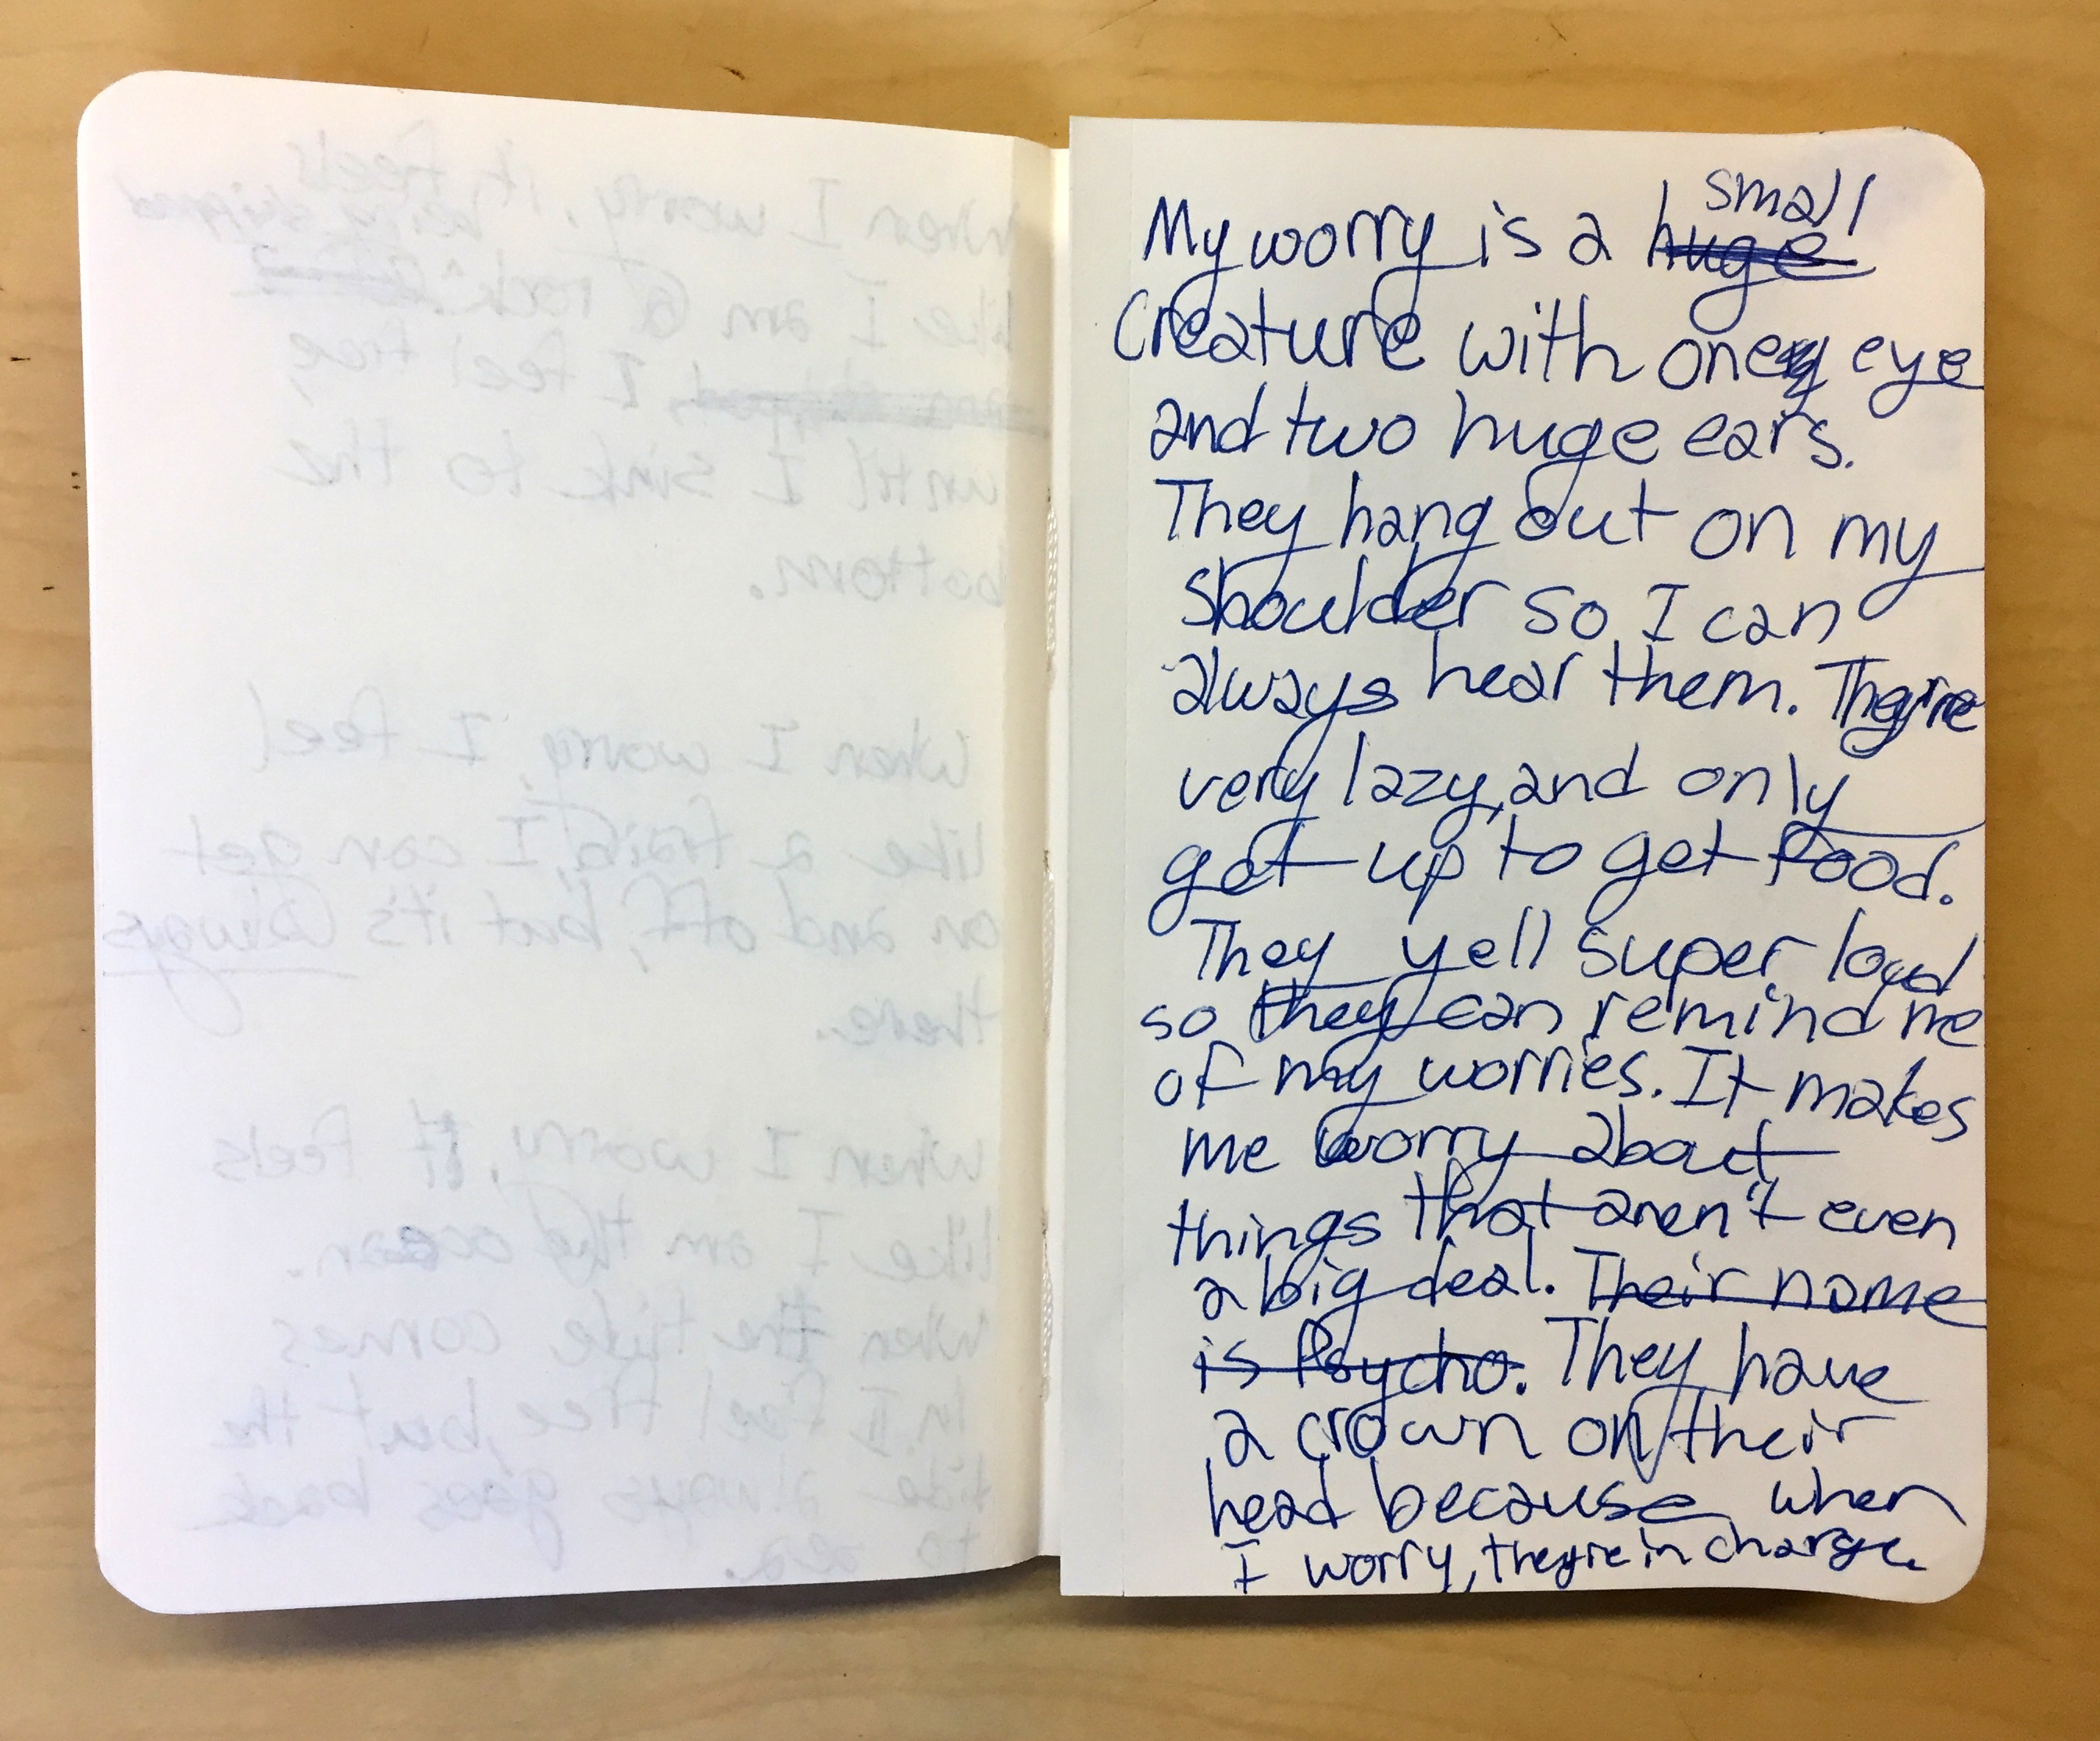 When I worry, it feels
being skipped
like I am a rock.
I feel free,
until I sink to the
bottom.
When I worry, I feel
like a I can get
on and off, but it's always
there.
When I worry, it feels
like I am the ocean.
When the tide comes
in I feel free, but the
tide always goes back
to sea.
small
My worry is a huge
creature with one eye
and two huge ears.
They hang out on my
shoulder so I can
always hear them. They're
very lazy, and only
get up to get food.
They yell super loud
so they can remind me
of my worries. It makes
me worry about
things that aren't even
a big deal. Their name
is Psycho. They have
a crown on their
head because when
I worry, they're in charge.